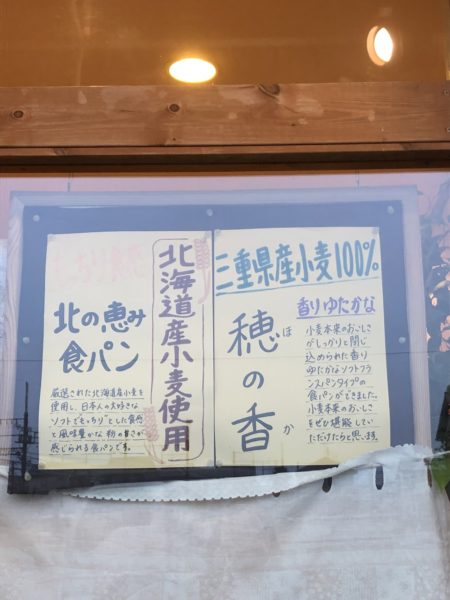 もっちり食感
北海道産小麦使用
北の恵み
食パン
厳選された北海道産小麦を
使用し、日本人の大好きな
ソフトで"もっちり"とした食感
と風味豊かな粉の甘さが
感じられる食パンです。
三重県産小麦100%
穂の香
ほ
か
香りゆたかな
小麦本来のおいしさ
がしっかりと閉じ
込められた香り
ゆたかなソフトフラ
ンスパンタイプの
食パンができました。
小麦本来のおいしさ
をぜひ堪能してい
ただけたらと思います。